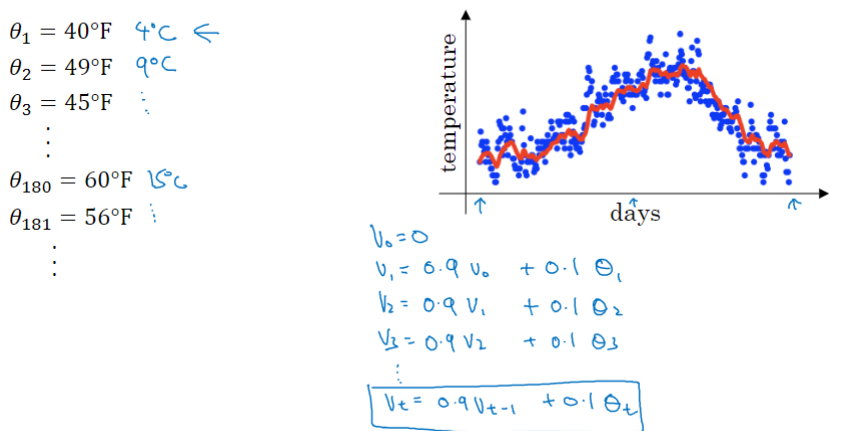 θ₁ = 40°F 4°C ←
θ₂ = 49°F 9°C
θ₃ = 45°F ⋮
⋮
θ₁₈₀ = 60°F 15°C
θ₁₈₁ = 56°F ⋮
⋮
temperature
days
V₀ = 0
V₁ = 0.9 V₀ + 0.1 θ₁
V₂ = 0.9 V₁ + 0.1 θ₂
V₃ = 0.9 V₂ + 0.1 θ₃
⋮
Vₜ = 0.9 Vₜ₋₁ + 0.1 θₜ